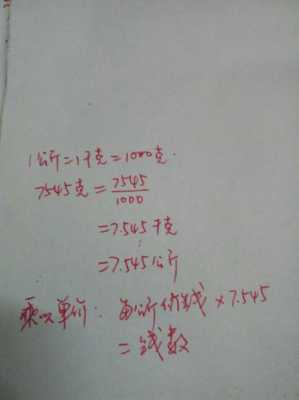 1公斤=1千克=1000克.
7545克=7545/1000
=7.545千克
=7.545公斤
乘以单价: 每公斤价钱×7.545
=钱数